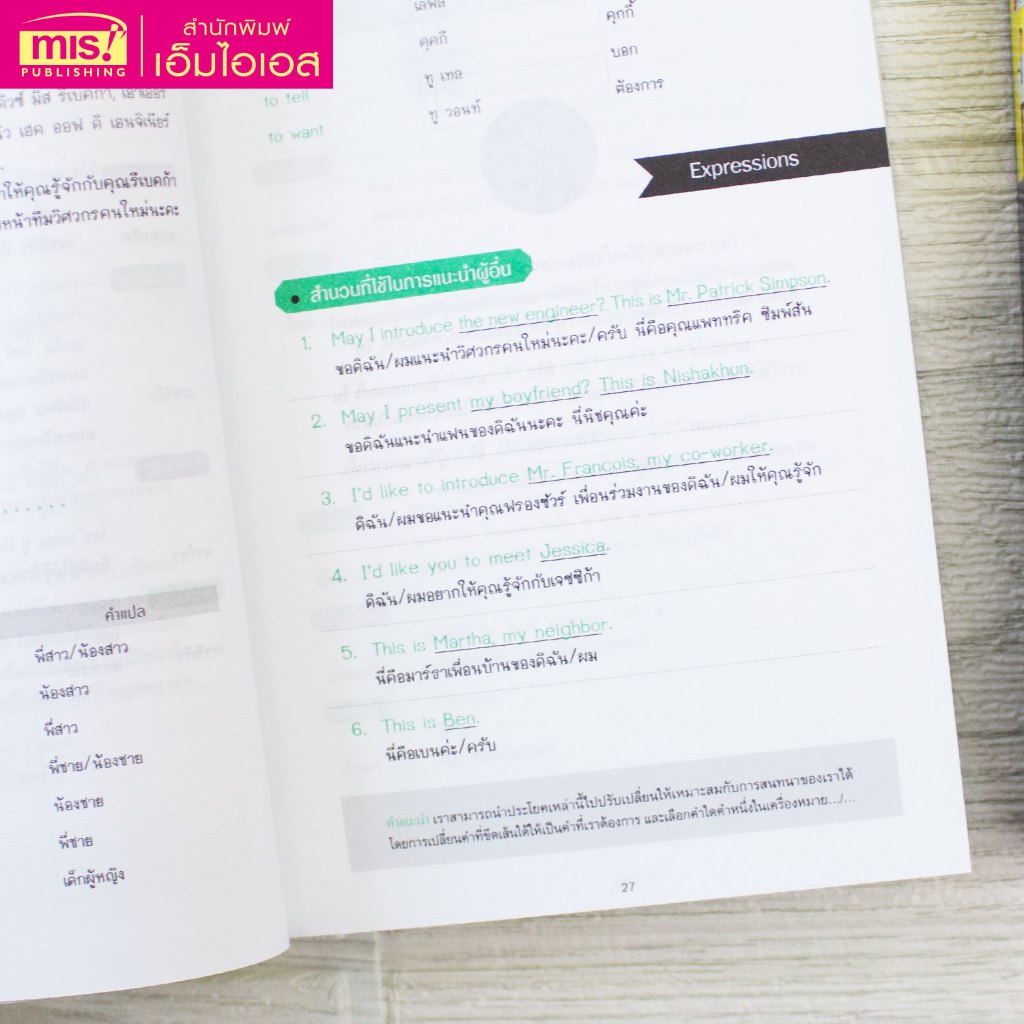 mis!
PUBLISHING
สำนักพิมพ์
เอ็มไอเอส
ออฟ ดิ เอนจิเนียร์
ให้คุณรู้จักกับคุณรีเบคก้า
หน้าทีมวิศวกรคนใหม่นะคะ
คำแปล
พี่สาว/น้องสาว
น้องสาว
พี่สาว
พี่ชาย/น้องชาย
น้องชาย
พี่ชาย
เด็กผู้หญิง
คุกกี้
คุคกี
to tell ทู เทล บอก
to want ทู วอนท์ ต้องการ
Expressions
• สำนวนที่ใช้ในการแนะนำผู้อื่น
1. May I introduce the new engineer? This is Mr. Patrick Simpson.
ขอดิฉัน/ผมแนะนำวิศวกรคนใหม่นะคะ/ครับ นี่คือคุณแพททริค ซิมพ์สัน
2. May I present my boyfriend? This is Nishakhun.
ขอดิฉันแนะนำแฟนของดิฉันนะคะ นี่นิชคุณค่ะ
3. I'd like to introduce Mr. Francois, my co-worker.
ดิฉัน/ผมขอแนะนำคุณฟรองซัวร์ เพื่อนร่วมงานของดิฉัน/ผมให้คุณรู้จัก
4. I'd like you to meet Jessica.
ดิฉัน/ผมอยากให้คุณรู้จักกับเจซซิก้า
5. This is Martha, my neighbor.
นี่คือมาร์ธาเพื่อนบ้านของดิฉัน/ผม
6. This is Ben.
นี่คือเบนค่ะ/ครับ
คำแนะนำ เราสามารถนำประโยคเหล่านี้ไปปรับเปลี่ยนให้เหมาะสมกับการสนทนาของเราได้
โดยการเปลี่ยนคำที่ขีดเส้นใต้ให้เป็นคำที่เราต้องการ และเลือกคำใดคำหนึ่งในเครื่องหมาย.../...
27